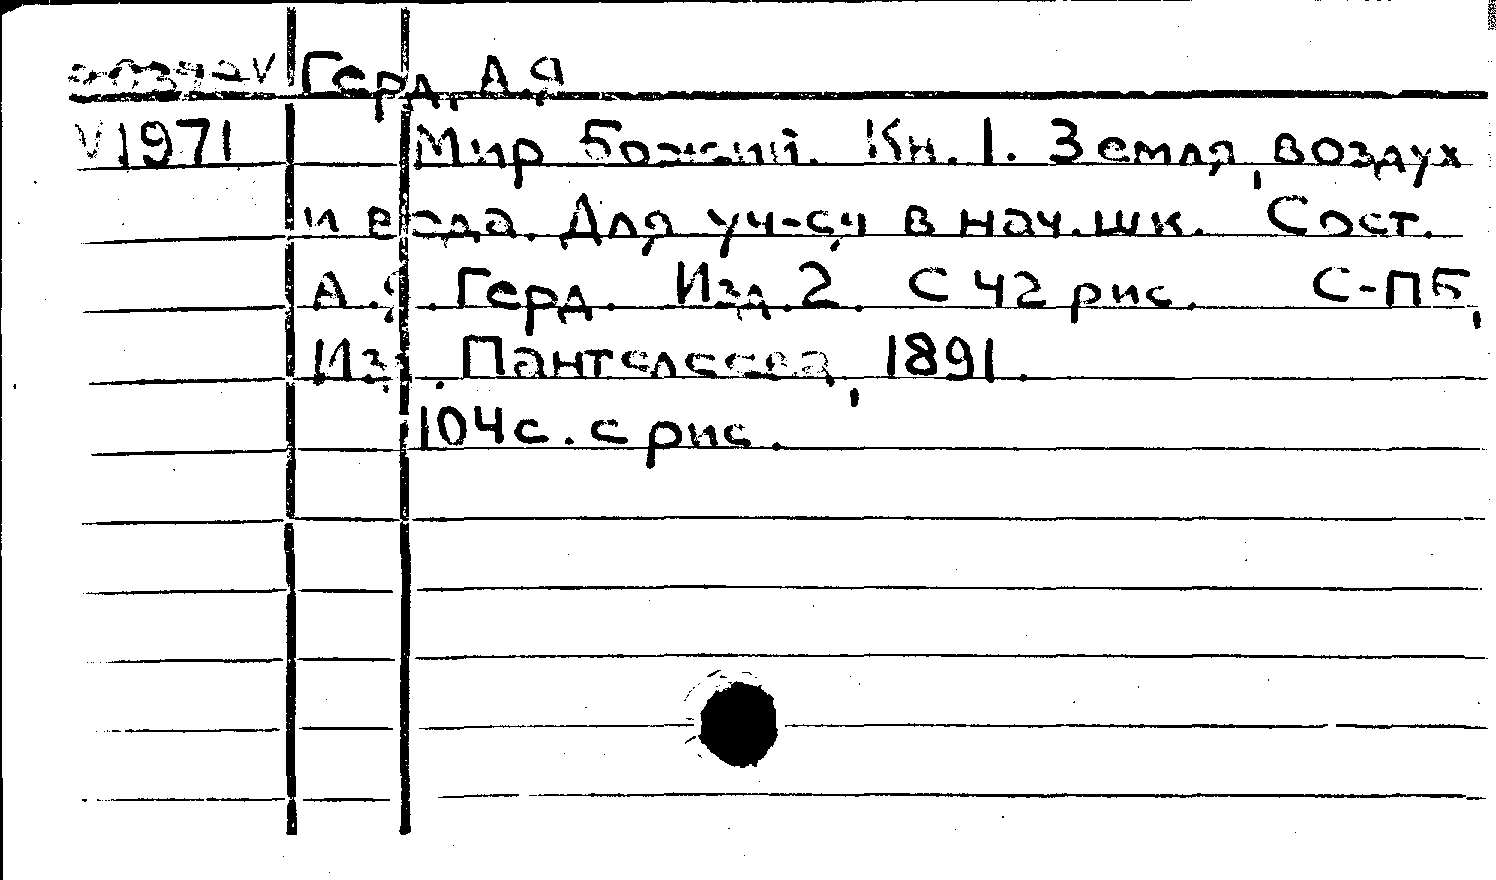 Герд, А.Я
V 1971 Мир Божий. Кн. 1. Земля, воздух
и вода. Для уч-ся в нач.шк. Сост.
А.Я. Герд. Изд.2. С 42 рис. С-ПБ,
Изд. Пантелеева, 1891.
104с. с рис.